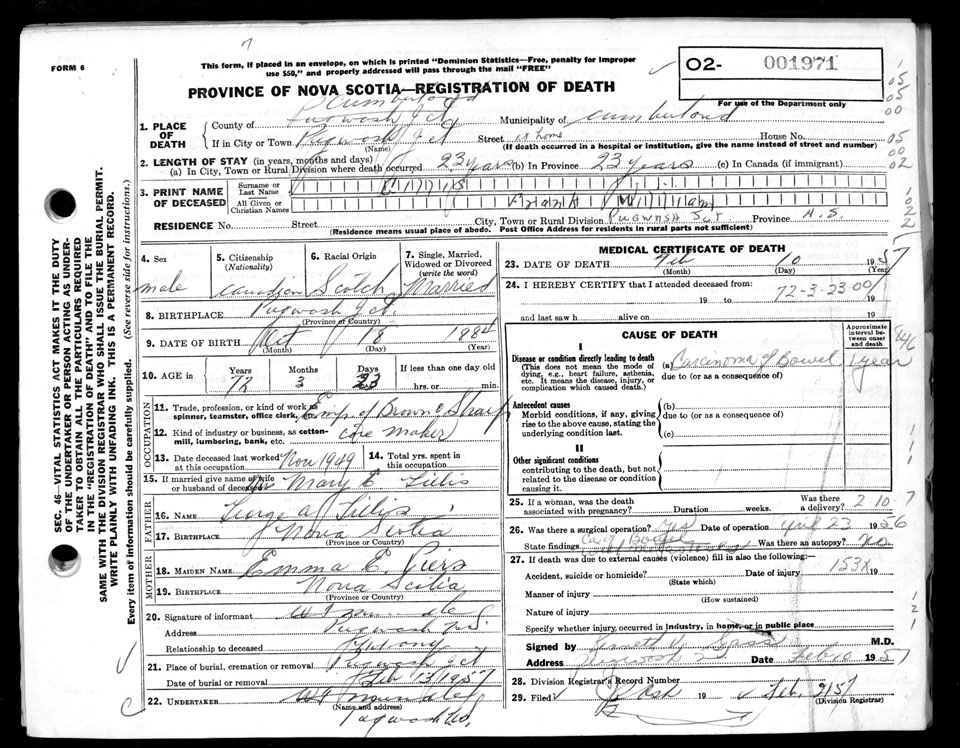 7
FORM 6
This form, if placed in an envelope, on which is printed "Dominion Statistics—Free, penalty for improper
use $50," and properly addressed will pass through the mail "FREE"
O2- 001971
For use of the Department only
PROVINCE OF NOVA SCOTIA—REGISTRATION OF DEATH
1. PLACE OF DEATH
County of Cumberland Pugwash Jct Municipality of Cumberland
If in City or Town Pugwash Jct Street at home House No.
(Name) (If death occurred in a hospital or institution, give the name instead of street and number)
2. LENGTH OF STAY (in years, months and days)
(a) In City, Town or Rural Division where death occurred 23 years (b) In Province 23 years (c) In Canada (if immigrant)
3. PRINT NAME OF DECEASED
Surname or Last Name
All Given or Christian Names Frank William
RESIDENCE No. Street City, Town or Rural Division Pugwash Jct Province N.S.
(Residence means usual place of abode. Post Office Address for residents in rural parts not sufficient)
4. Sex
male
5. Citizenship
(Nationality)
Canadian
6. Racial Origin
Scotch
7. Single, Married,
Widowed or Divorced
(write the word)
Married
8. BIRTHPLACE Pugwash Jct.
(Province or Country)
9. DATE OF BIRTH Oct 18 1884
(Month) (Day) (Year)
10. AGE in
Years Months Days If less than one day old
72 3 23 hrs. or min.
OCCUPATION
11. Trade, profession, or kind of work as
spinner, teamster, office clerk, Emp. of Brown & Sharp
12. Kind of industry or business, as cotton-
mill, lumbering, bank, etc. core maker
13. Date deceased last worked
at this occupation Nov 1949
14. Total yrs. spent in
this occupation
15. If married give name of wife
or husband of deceased Mrs Mary E
FATHER
16. NAME George A
17. BIRTHPLACE Nova Scotia
(Province or Country)
MOTHER
18. MAIDEN NAME Emma E. Piers
19. BIRTHPLACE Nova Scotia
(Province or Country)
20. Signature of informant
Address Pugwash N.S.
Relationship to deceased
21. Place of burial, cremation or removal Pugwash Jct
Date of burial or removal Feb 13 1957
22. UNDERTAKER
(Name and address)
Pugwash
MEDICAL CERTIFICATE OF DEATH
23. DATE OF DEATH Feb 10 1957
(Month) (Day) (Year)
24. I HEREBY CERTIFY that I attended deceased from:
19 to 19
72-3-23 00
and last saw h alive on 19
CAUSE OF DEATH
Approximate
interval be-
tween onset
and death
I
Disease or condition directly leading to death
(This does not mean the mode of
dying, e.g., heart failure, asthenia,
etc. It means the disease, injury, or
complication which caused death.)
(a) Carcinoma of Bowel 1 year
due to (or as a consequence of)
Antecedent causes
Morbid conditions, if any, giving
rise to the above cause, stating the
underlying condition last.
(b)
due to (or as a consequence of)
(c)
II
Other significant conditions
contributing to the death, but not
related to the disease or condition
causing it.
25. If a woman, was the death
associated with pregnancy? Duration weeks. Was there
a delivery?
2-10-7
26. Was there a surgical operation? Yes Date of operation April 23 1956
State findings Ca of Bowel Was there an autopsy? No
27. If death was due to external causes (violence) fill in also the following:—
Accident, suicide or homicide? Date of injury 19
(State which)
153X
Manner of injury
(How sustained)
Nature of injury
Specify whether injury, occurred in industry, in home, or in public place
Signed by M.D.
Address Pugwash Date Feb 10 1957
28. Division Registrar's Record Number
29. Filed 19
(Division Registrar)
SEC. 46—VITAL STATISTICS ACT MAKES IT THE DUTY
OF THE UNDERTAKER OR PERSON ACTING AS UNDER-
TAKER TO OBTAIN ALL THE PARTICULARS REQUIRED
IN THE "REGISTRATION OF DEATH" AND TO FILE THE
SAME WITH THE DIVISION REGISTRAR WHO SHALL ISSUE THE BURIAL PERMIT.
WRITE PLAINLY WITH UNFADING INK. THIS IS A PERMANENT RECORD.
Every item of information should be carefully supplied. (See reverse side for instructions.)